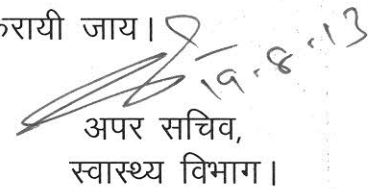 करायी जाय।
19.8.13
अपर सचिव,
स्वास्थ्य विभाग।